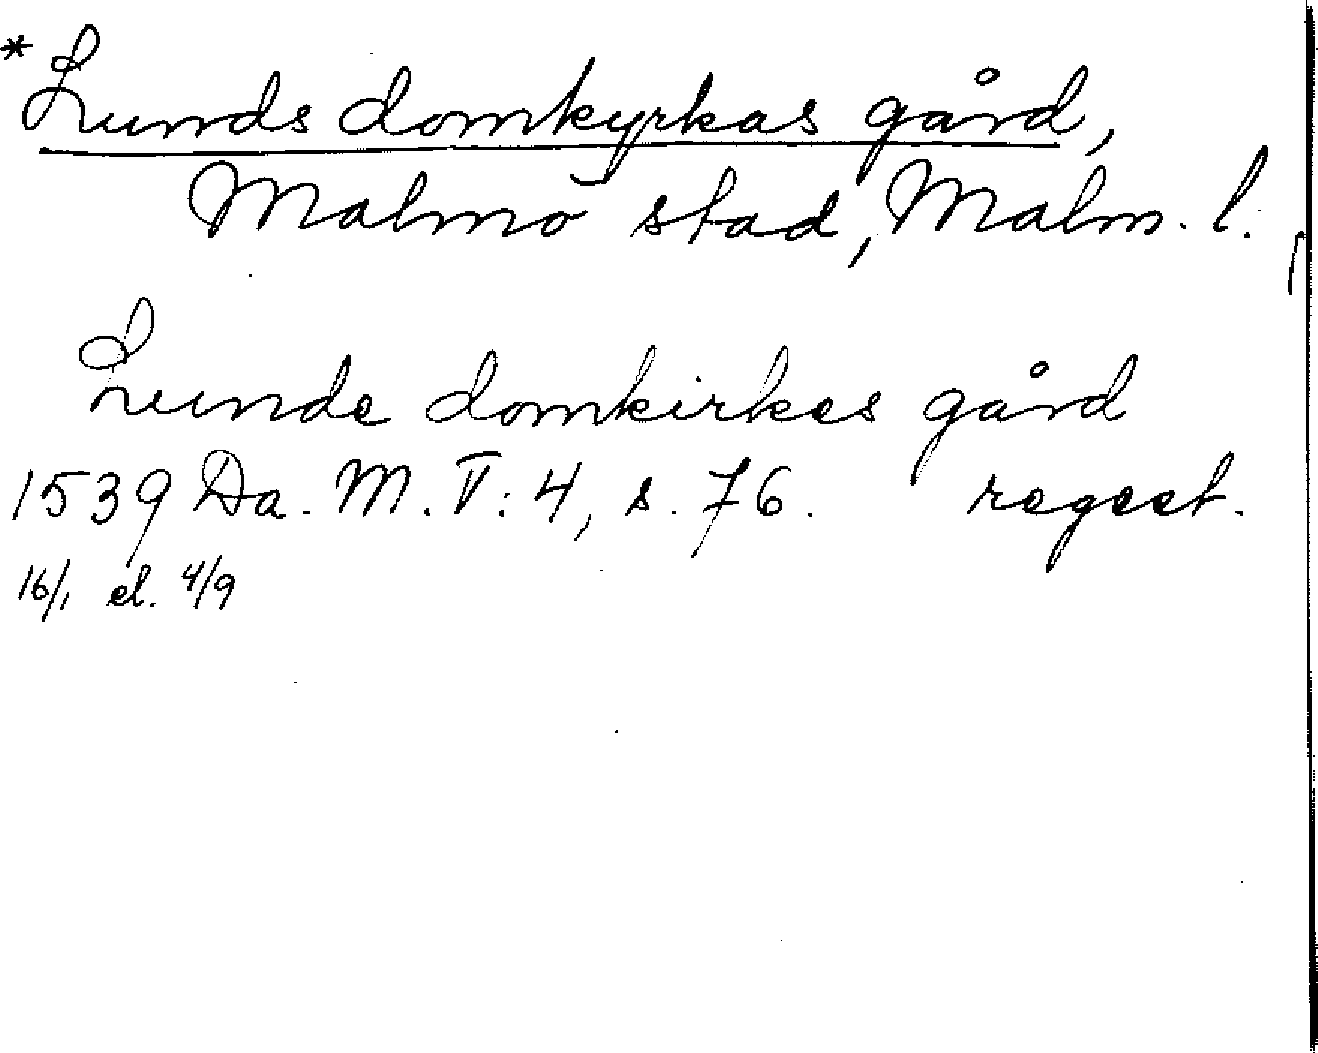 *Lunds domkyrkas gård,
Malmö stad, Malm. l.
Lunde domkirkes gård
1539 Da. M. V: 4, s. 76. regest.
16/1 el. 4/9